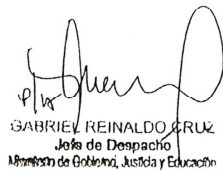 P/A
GABRIEL REINALDO CRUZ
Jefe de Despacho
Ministerio de Gobierno, Justicia y Educación